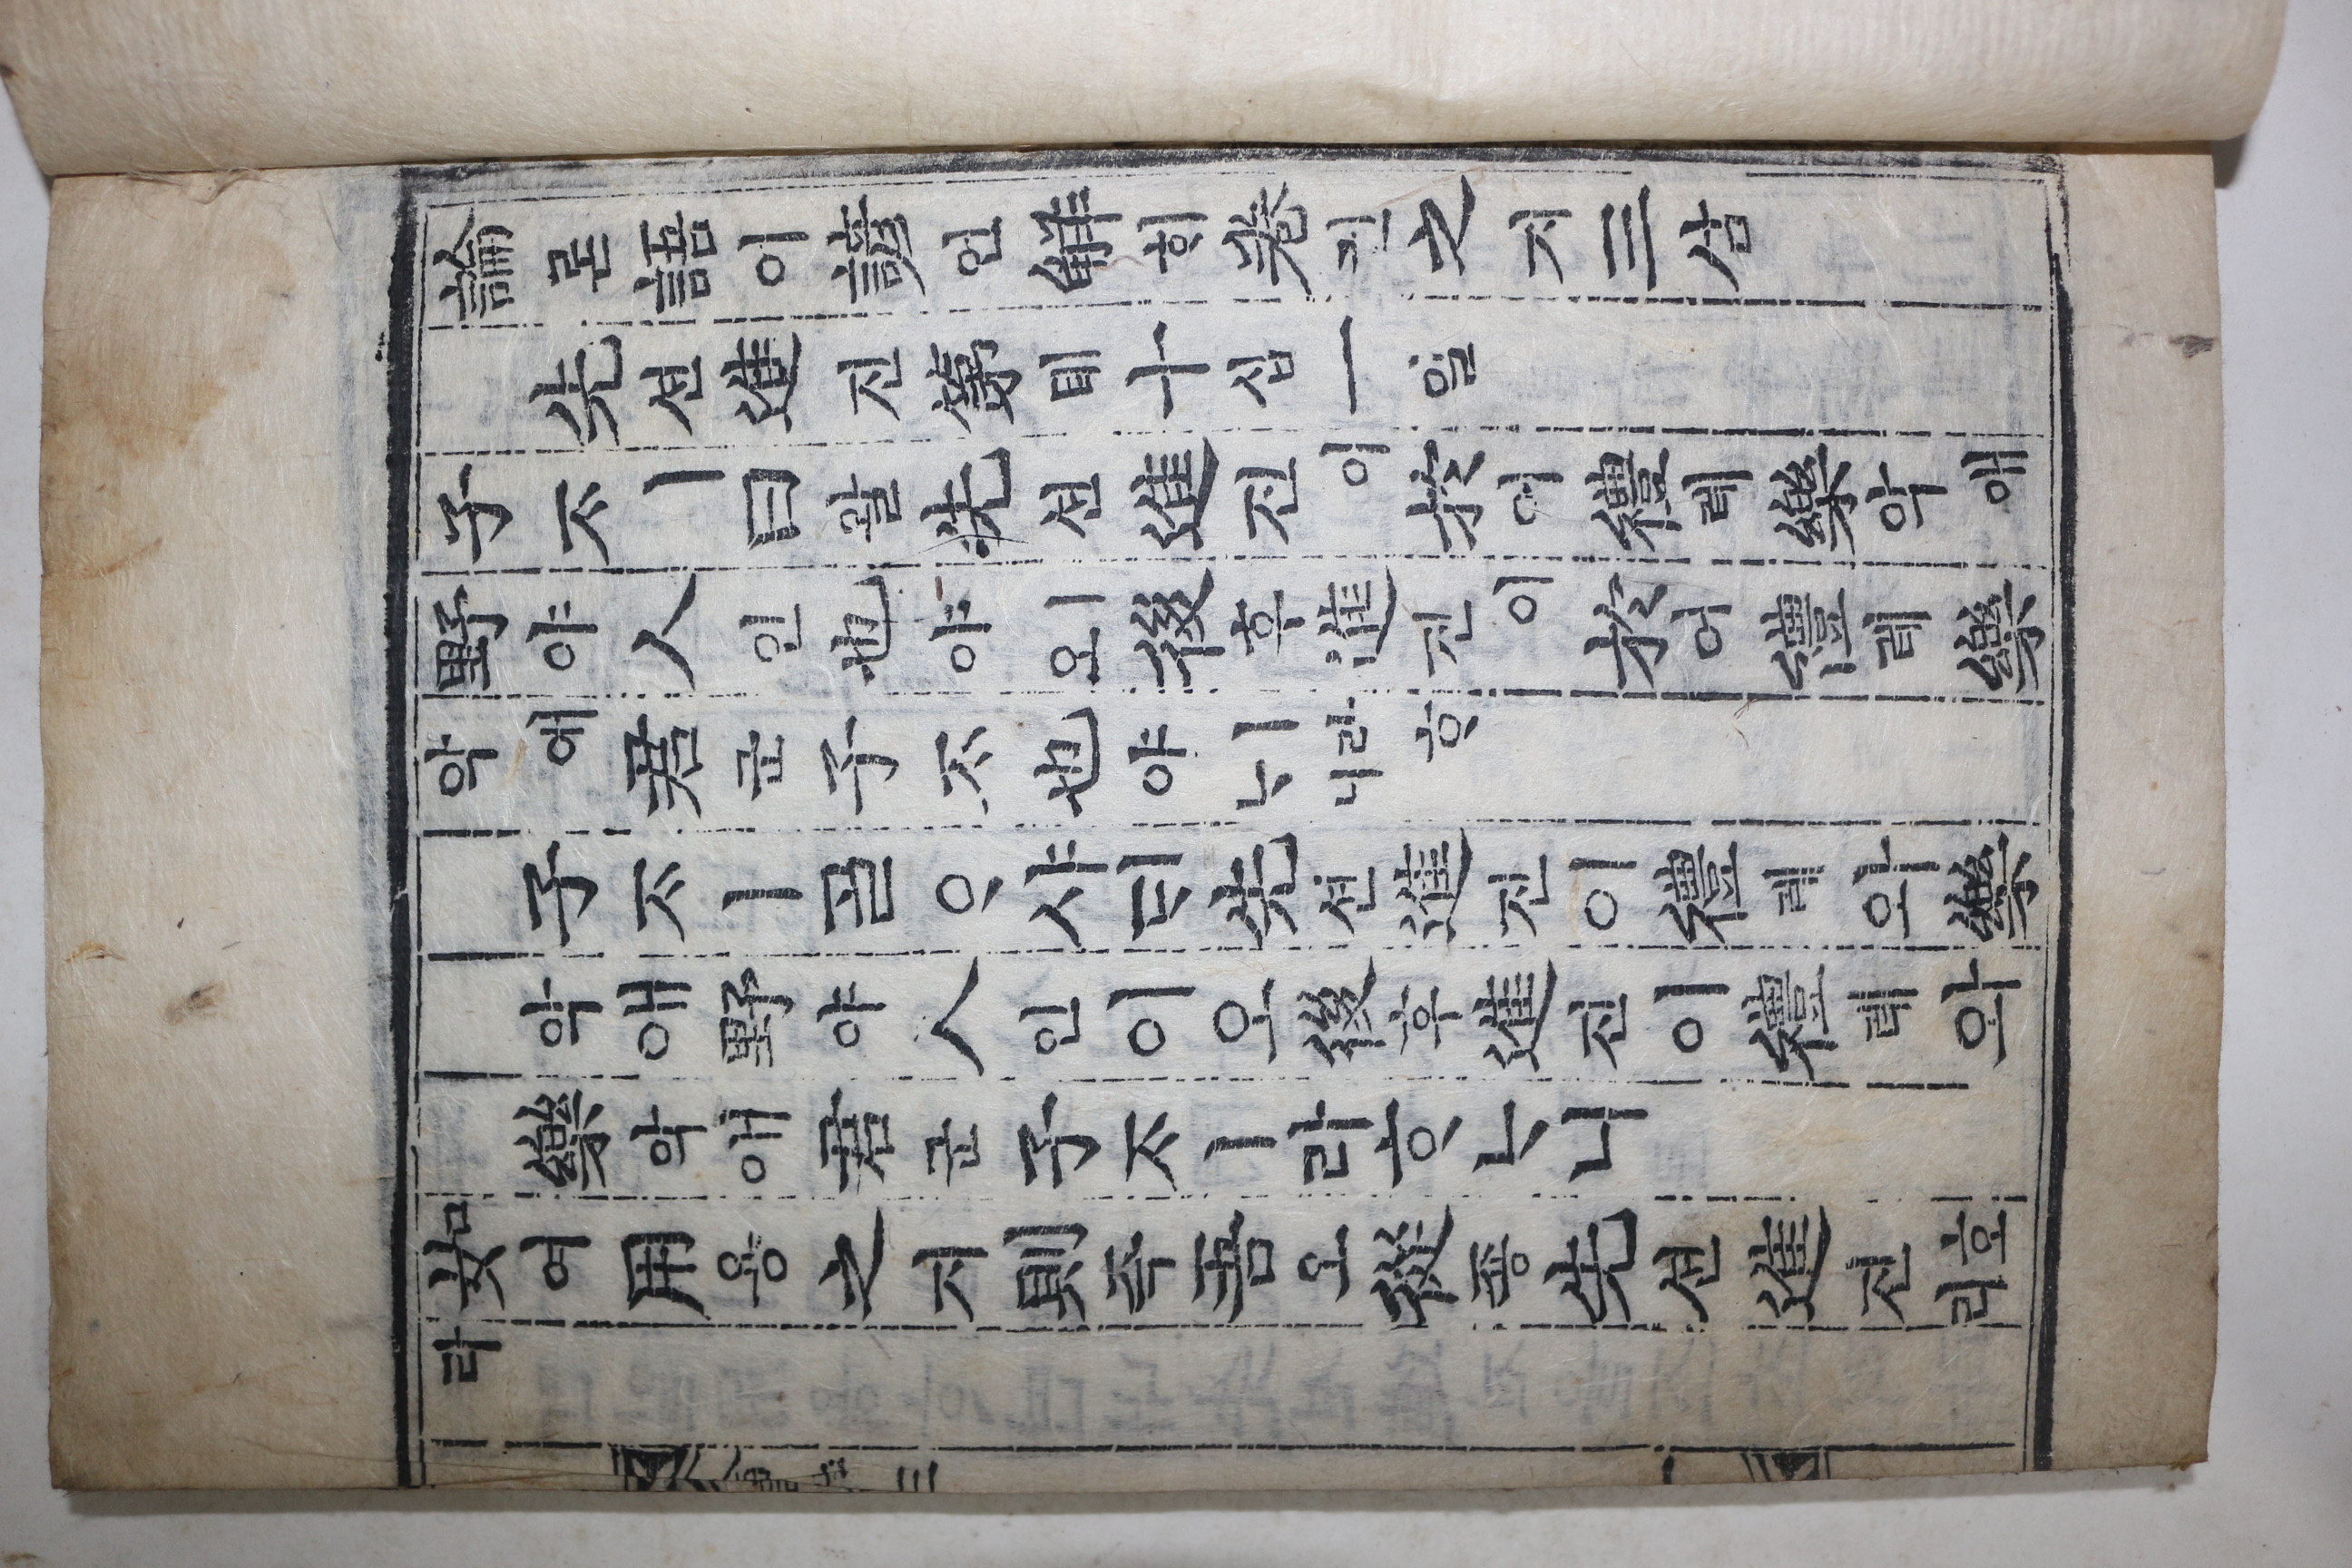 論론語어諺언解ᄒᆡ卷권之지三삼
先션進진第뎨十십一일
子ᄌᆞㅣ曰왈先션進진이於어禮례樂악애
野야人인也야ㅣ오後후進진이於어禮례樂
악애君군子ᄌᆞ也야ㅣ라ᄒᆞᄂᆞ니
子ᄌᆞㅣᄀᆞᆯᄋᆞ샤ᄃᆡ先션進진이禮례와樂
악애野야人인이오後후進진이禮례와
樂악애君군子ᄌᆞㅣ라ᄒᆞᄂᆞ니
如여用용之지則즉吾오從죵先션進진호리
라
三